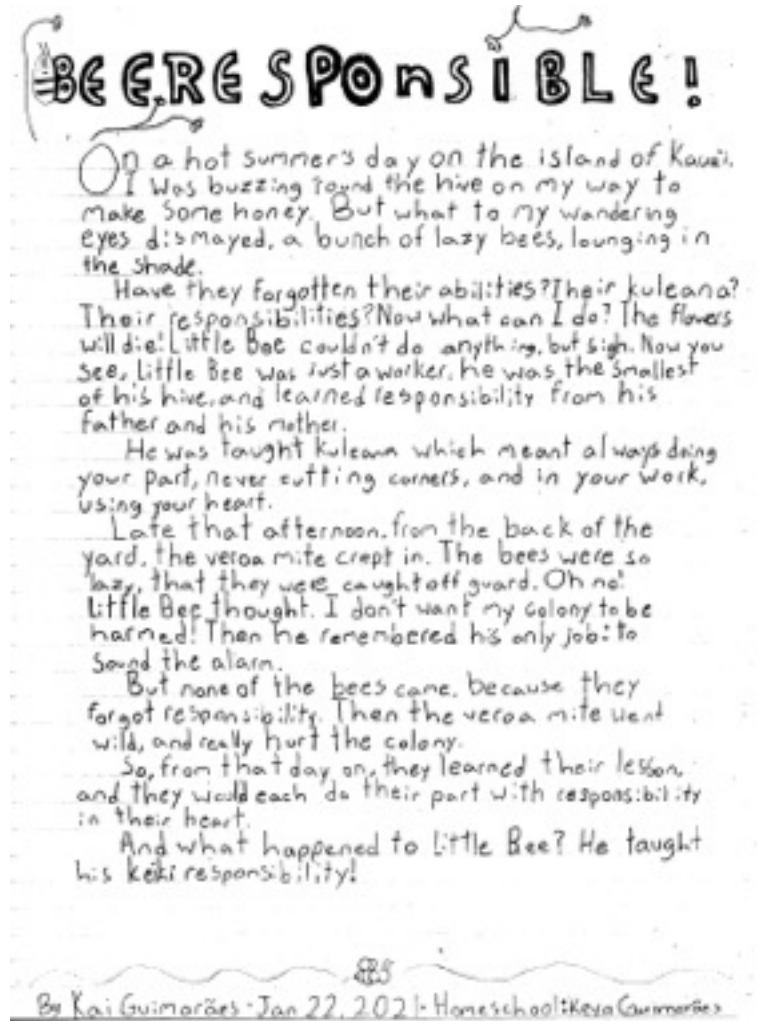 BEE.RESPOnSiBLE!
On a hot summer's day on the island of Kaua'i.
I was buzzing round the hive on my way to
make some honey. But what to my wandering
eyes dismayed, a bunch of lazy bees, lounging in
the shade.
Have they forgotten their abilities? Their kuleana?
Their responsibilities? Now what can I do? The flowers
will die! Little Bee couldn't do anything, but sigh. Now you
see, Little Bee was just a worker, he was the smallest
of his hive, and learned responsibility from his
father and his mother.
He was taught kuleana which meant always doing
your part, never cutting corners, and in your work,
using your heart.
Late that afternoon, from the back of the
yard, the veroa mite crept in. The bees were so
lazy, that they were caught off guard. Oh no!
Little Bee thought. I don't want my colony to be
harmed! Then he remembered his only job: to
sound the alarm.
But none of the bees came, because they
forgot responsibility. Then the veroa mite went
wild, and really hurt the colony.
So, from that day on, they learned their lesson,
and they would each do their part with responsibility
in their heart.
And what happened to Little Bee? He taught
his keiki responsibility!
By Kai Guimarães - Jan 22, 2021 - Homeschool: Keya Guimarães